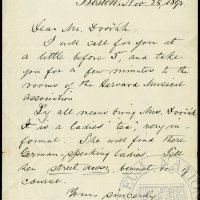 Boston, Nov. 28, 189
Dear Mr. Dvořák.
I will call for you at
a little before 5, and take
you for a few minutes to
the rooms of the Harvard Musical
association
By all means bring Mrs. Dvořák
It is a ladies' tea, very in-
formal. She will find there
German-speaking ladies. Tell
her street dress, bonnet of
course.
Yours sincerely